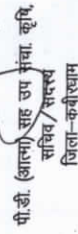 पी.डी. (आत्मा) सह उप संचा. कृषि,
सचिव/सदस्य
जिला–कबीरधाम